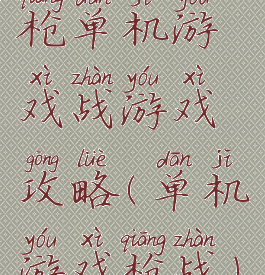 qiāng dān jī yóu
枪单机游
xì zhàn yóu xì
戏战游戏
gōng lüè dān jī
攻略(单机
yóu xì qiāng zhàn
游戏枪战)